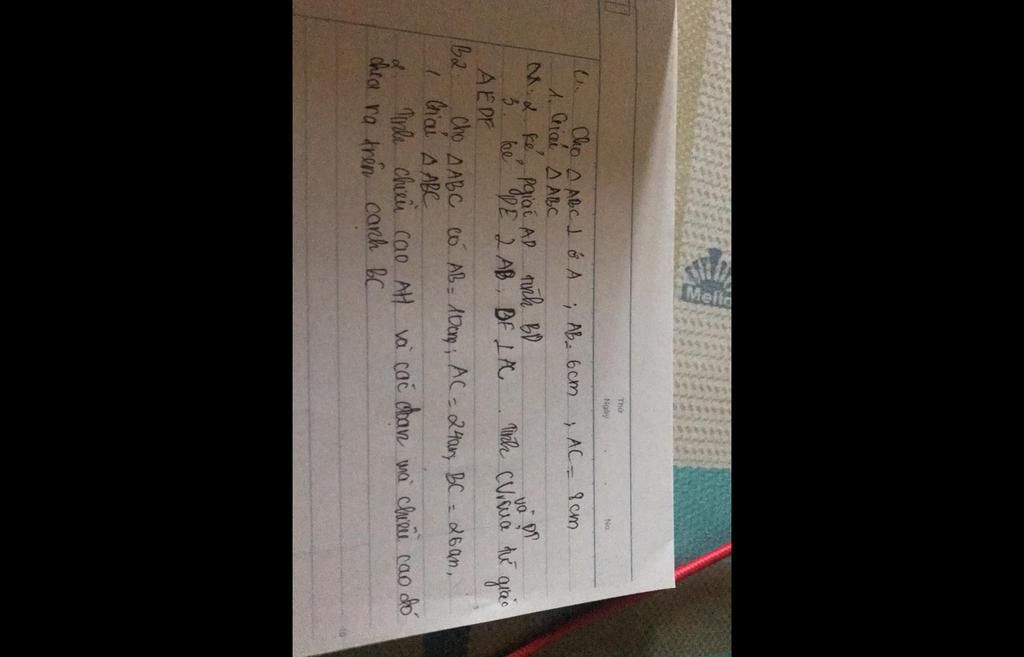 Thứ
Ngày
No.
Cho △ABC ⊥ ở A ; AB = 6cm ; AC = 8cm
1. Giải △ABC
2 Kẻ pgiai AD tính BD
và DT
3. kẻ DE ⊥ AB, DF ⊥ AC. Tính CV của tứ giác
AEDF
B2 Cho △ABC có AB = 10cm; AC = 24cm, BC = 26cm,
1 Giải △ABC
2 Tính chiều cao AH và các đoạn mà chiều cao đó
chia ra trên cạnh BC